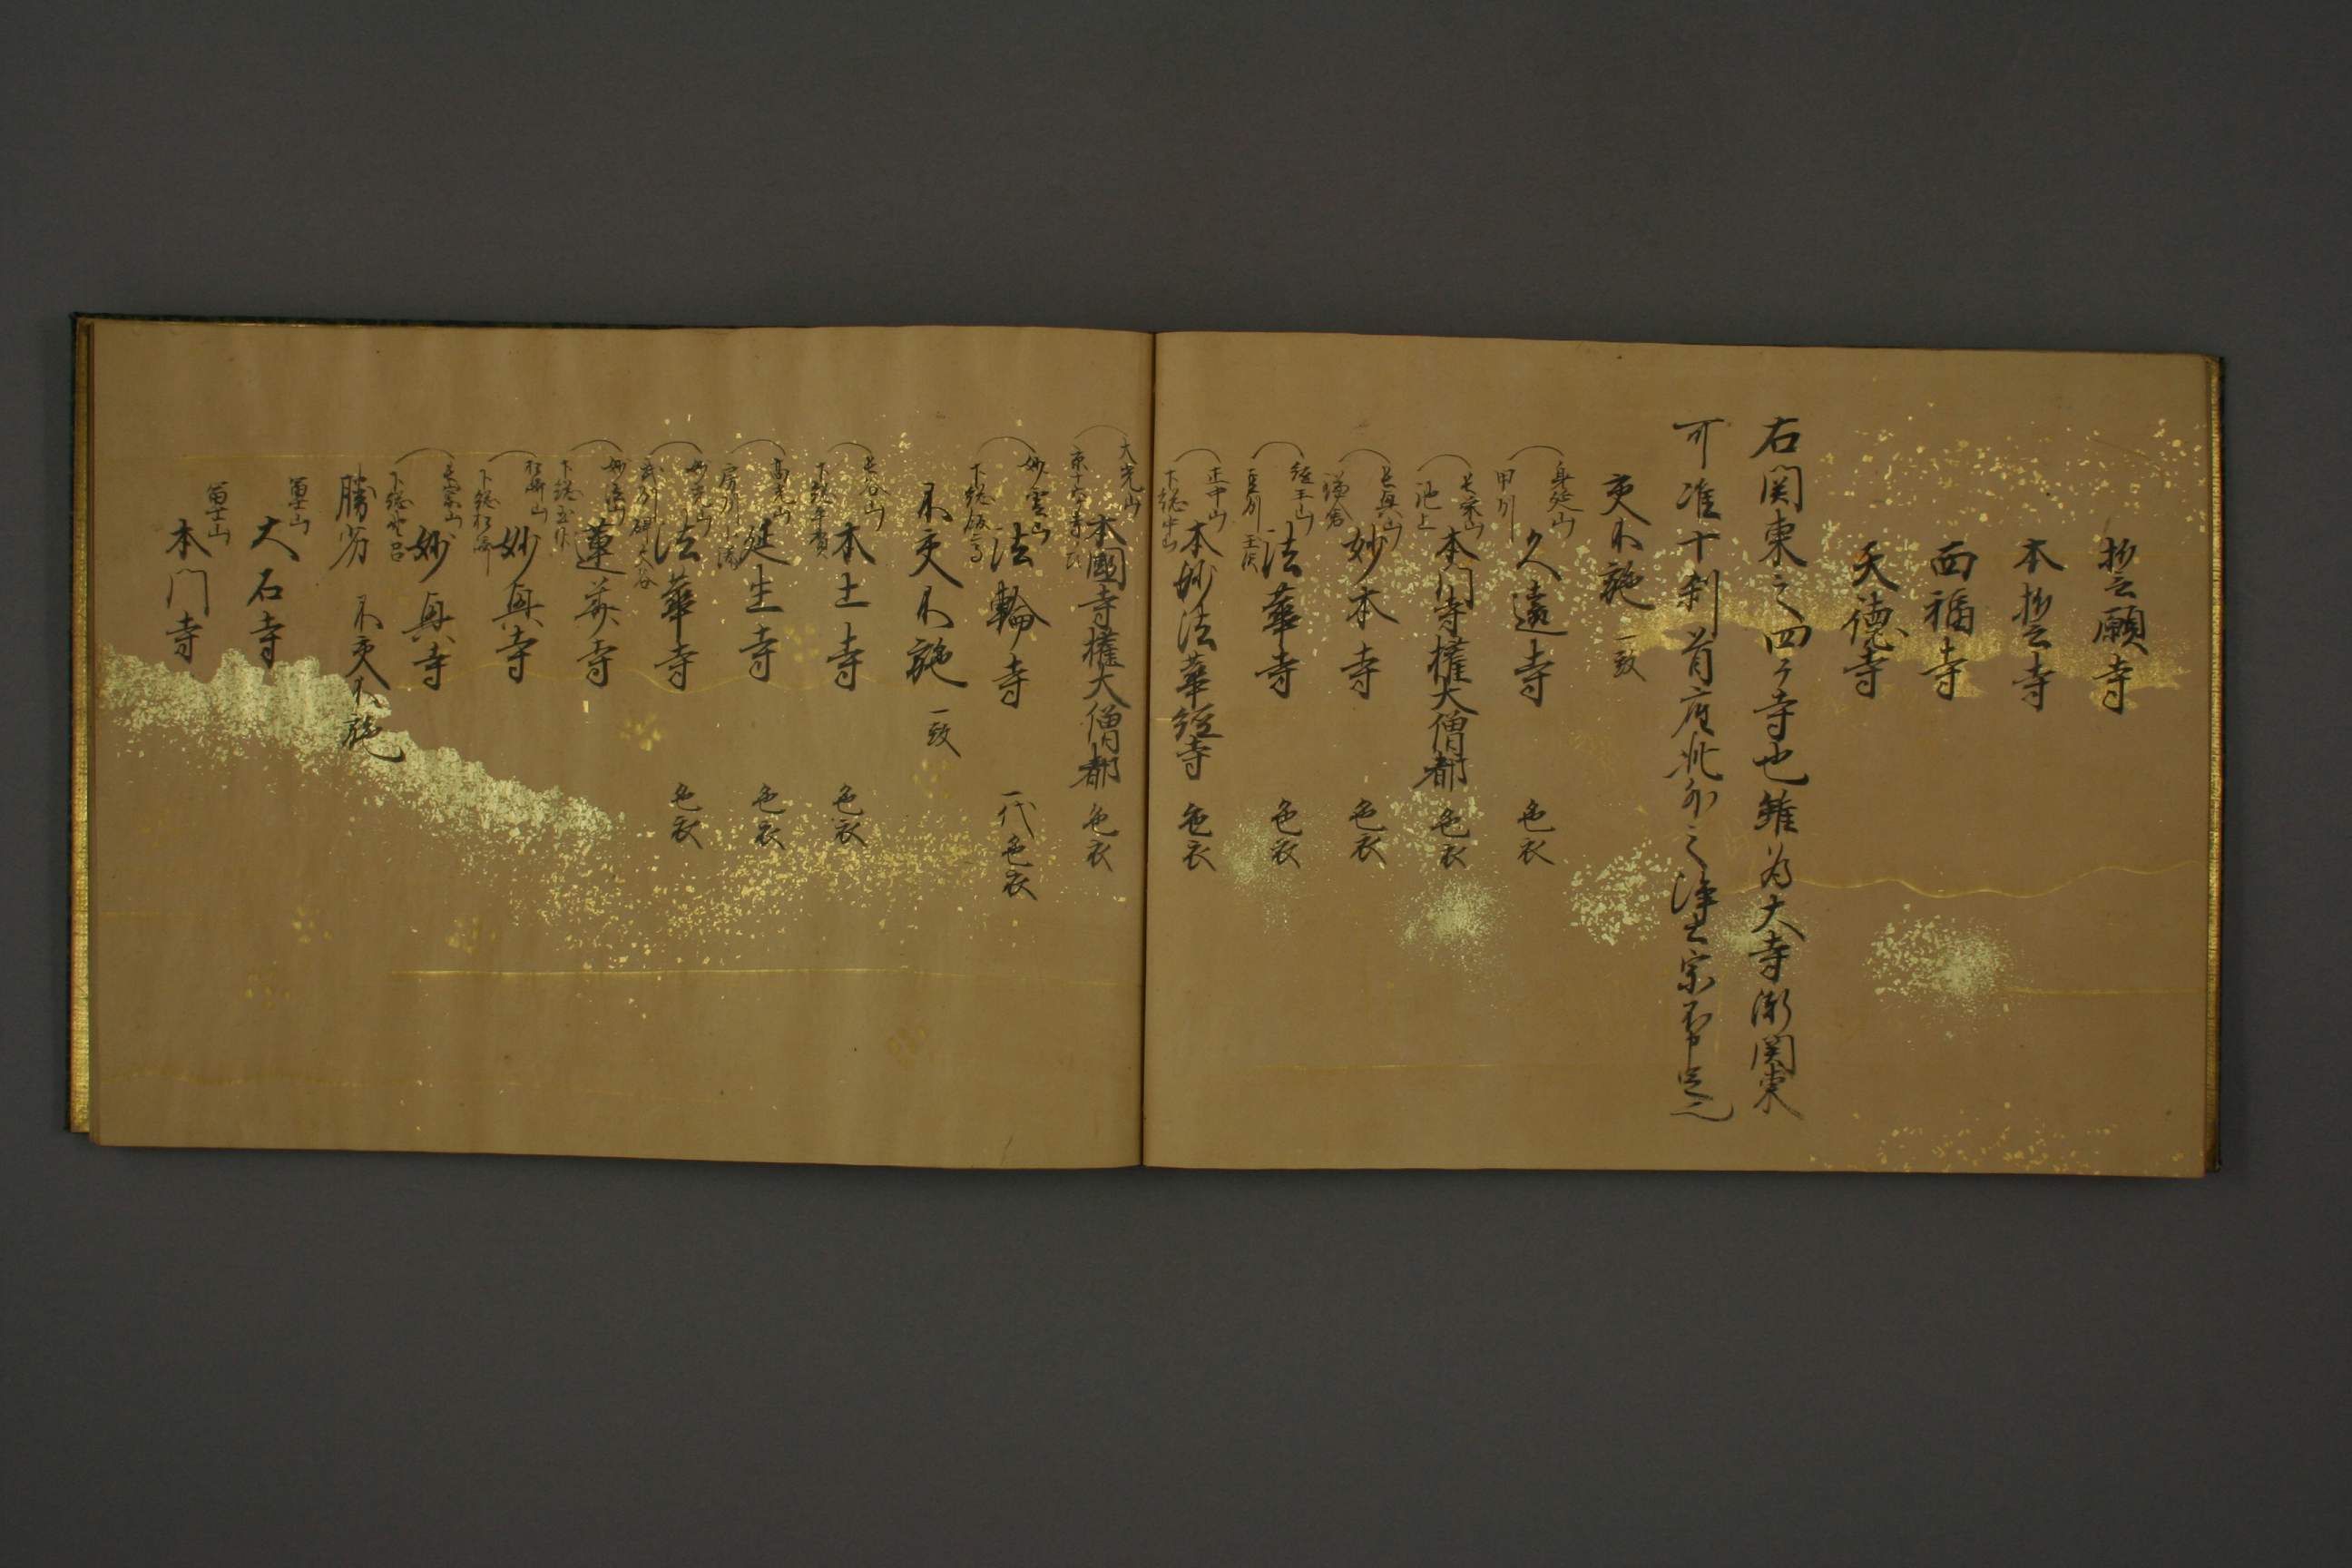 誓願寺
本誓寺
西福寺
天徳寺
右関東之四ケ寺也雖為大寺漸関東
可准十刹首座此外之浄土宗不可足
受不施 一致
身延山
甲州
久遠寺 色衣
長栄山
池上
本門寺権大僧都 色衣
長興山
鎌倉
妙本寺 色衣
経王山
豆州玉沢
法華寺 色衣
正中山
下総中山
本妙法華経寺 色衣
大光山
本國寺権大僧都 色衣
妙雲山
下総飯高
法輪寺 一代色衣
不受不施 一致
長谷山
下総平賀
本土寺 色衣
高光山
房州小湊
誕生寺 色衣
妙光山
武州碑文谷
法華寺 色衣
下総玉作
蓮華寺
松崎山
下総松崎
妙興寺
長宗山
下総野呂
妙興寺
勝劣 不受不施
富士山
大石寺
富士山
本門寺